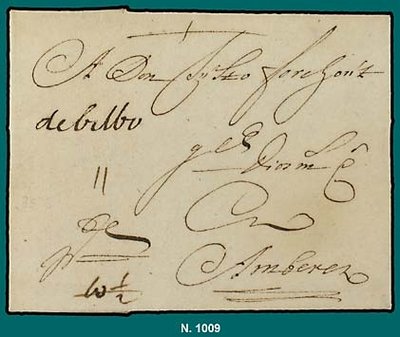 A Don Justo forchont
de bilbo
ge Diosm
En
Amberes
10 1/2
N. 1009